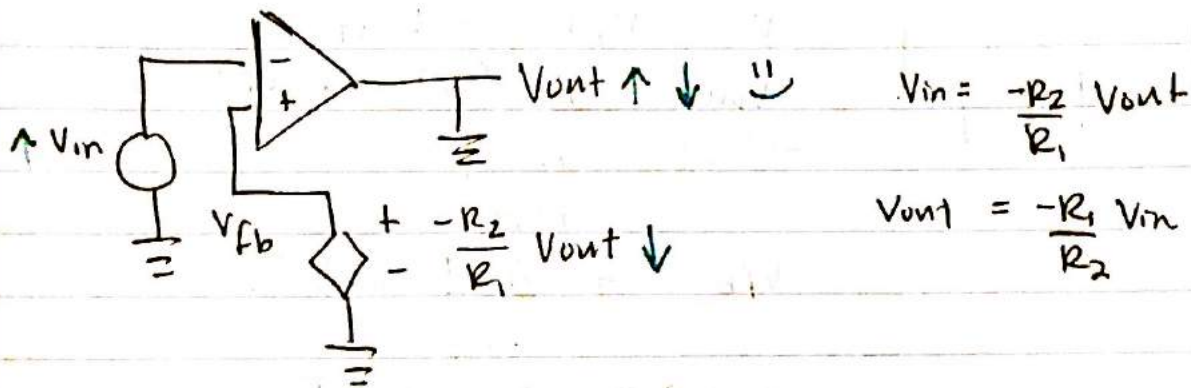 Vout ↑ ↓ Vin = -R2/R1 Vout
↑ Vin
- +
Vfb + - -R2/R1 Vout ↓
Vout = -R1/R2 Vin